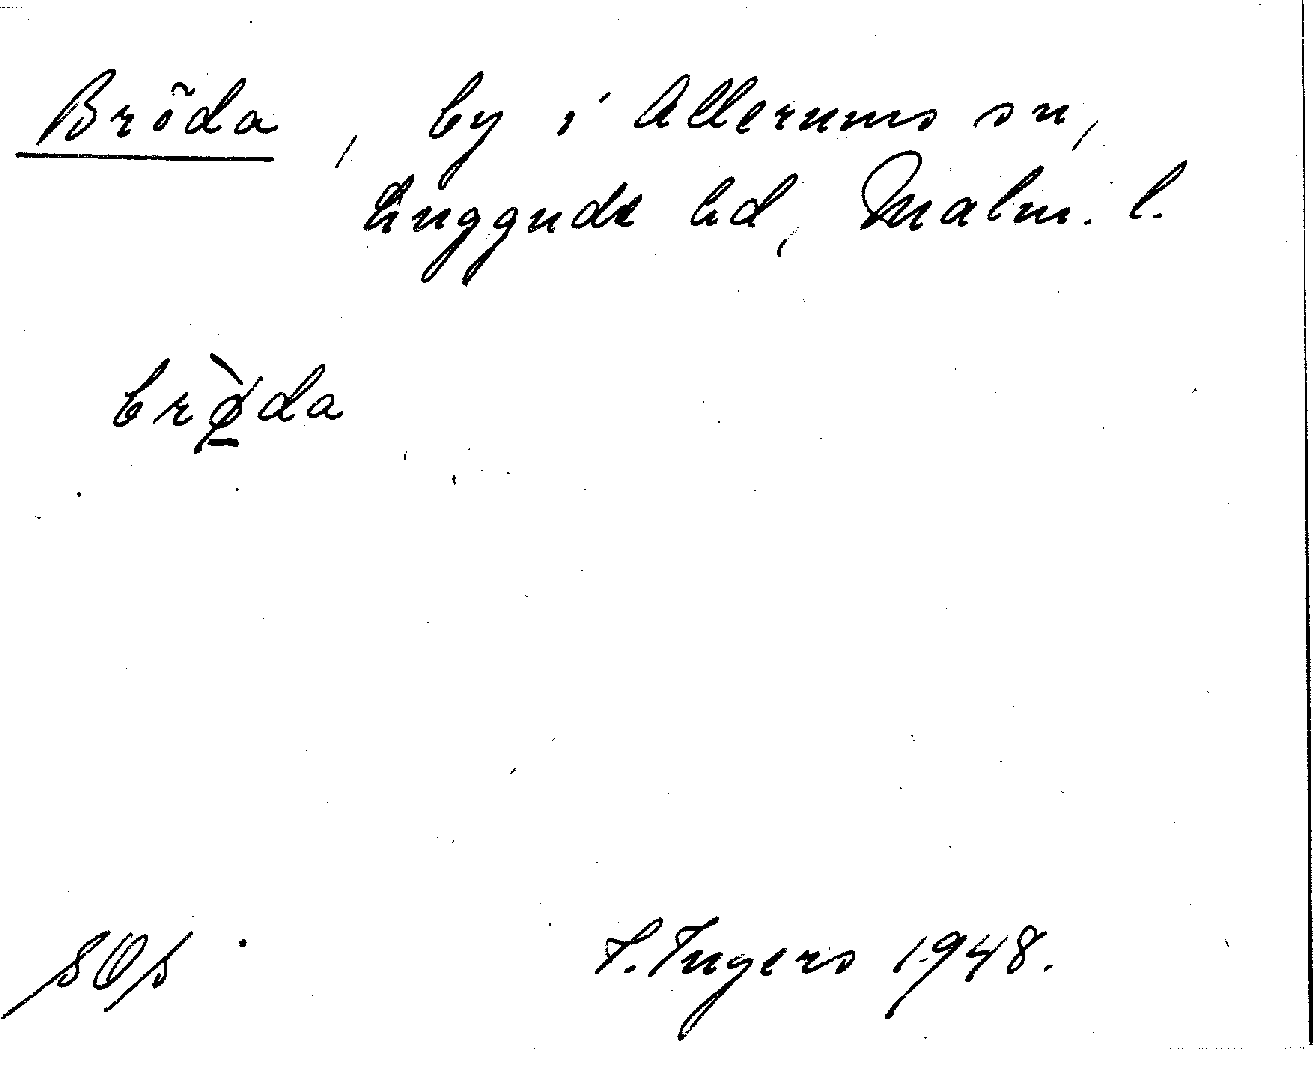 Bröda, by i Allerums sn,
Luggude hd, Malm. l.
brø̠̀da
SOS I. Ingers 1948.